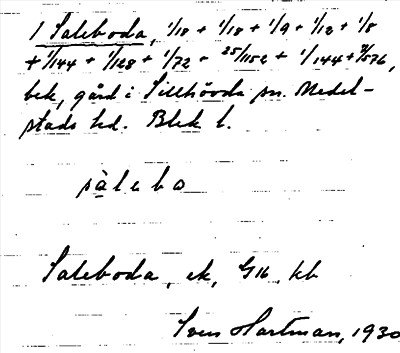 1 Saleboda, 1/18 + 1/18 + 1/9 + 1/12 + 1/8
+ 1/144 + 1/128 + 1/72 + 25/1152 + 1/144 + 7/576,
bek, gård i Sillhövda sn. Medel-
stads hd. Blek l.
sàlebo
Saleboda, ek, G16, kb
Sven Hartman, 1930